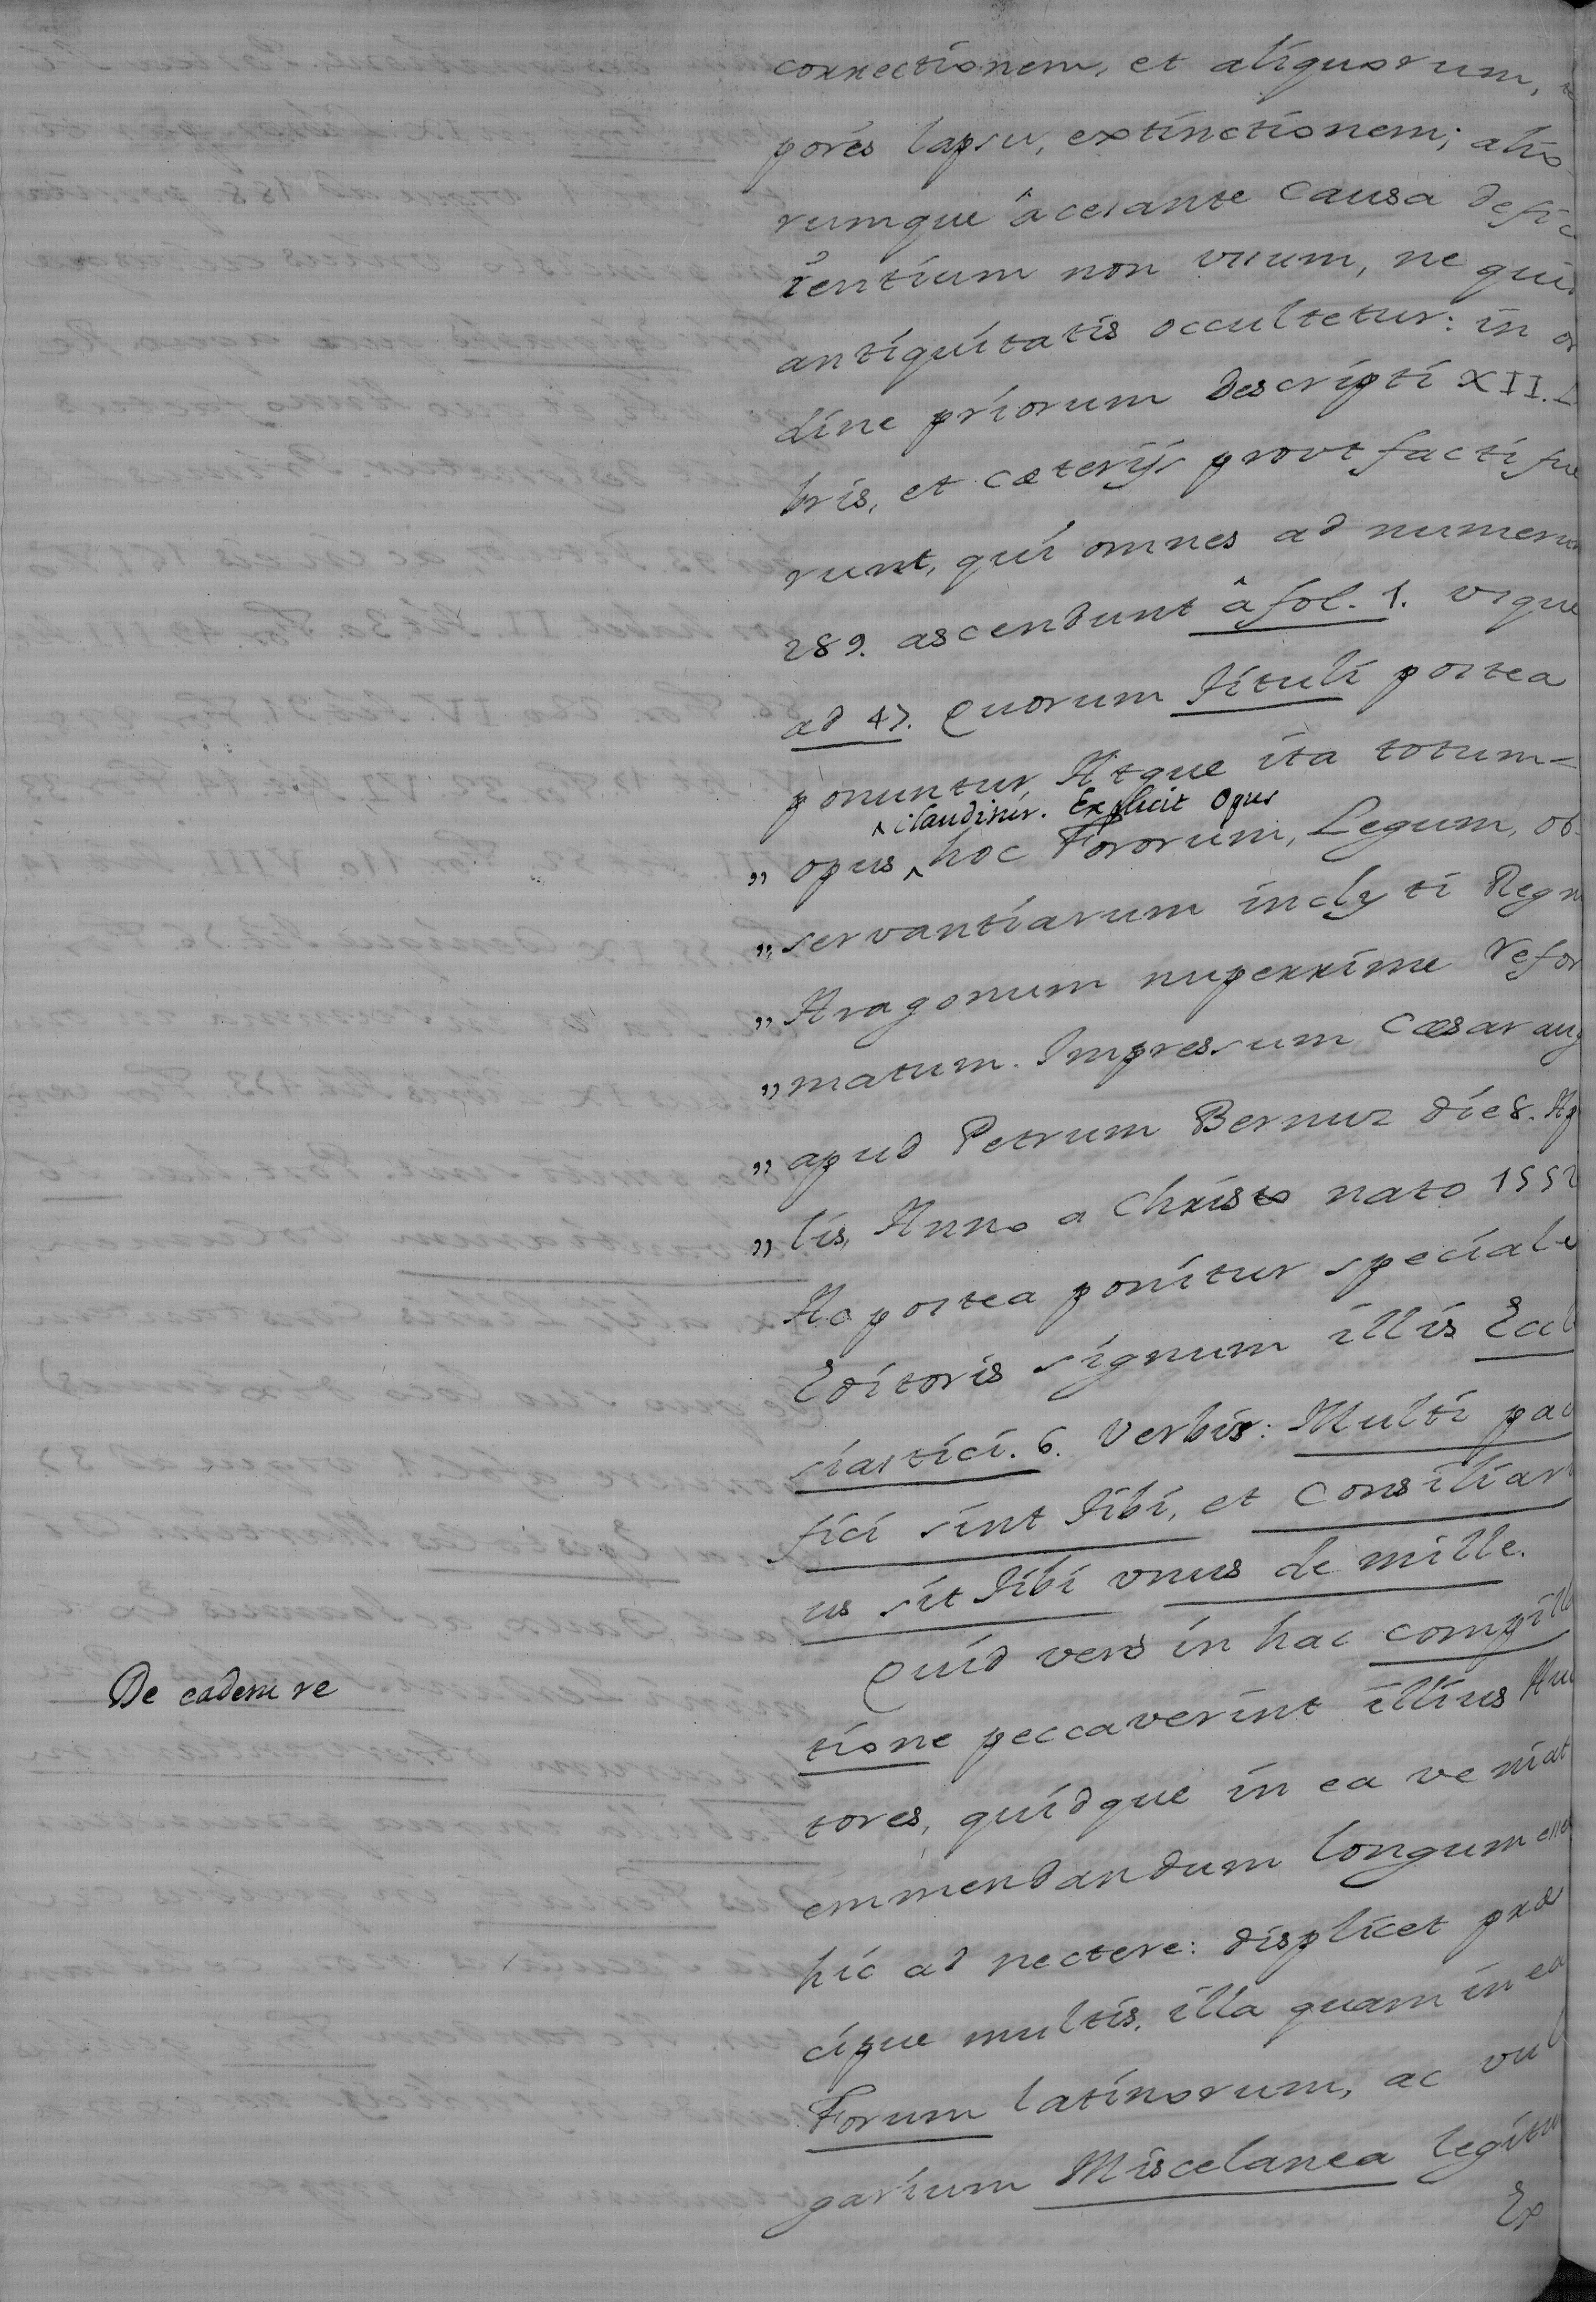 correctionem, et aliquorum,
poris lapsu, extinctionem; alio
rumque â cesante causa defic
ientium non vsum, ne quid
antiquitatis occultetur: in or
dine priorum descripti XII. L
bris, et cæterijs provt facti fue
runt, qui omnes ad numerum
289. ascendunt â fol. 1. vsque
ad 47. Quorum Tituli postea
ponuntur, Atque ita totum-
clauditur. Explicit Opus
„ opus ^ hoc Fororum, Legum, ob-
„ servantiarum inclyti Regn
„ Aragonum nuperrime refor
„ matum. Impressum Cæsaraug
„ apud Petrum Bernuz die 8. Ap
„ lis, Anno a Christo nato 1552
Ac postea ponitur speciale
Editoris signum illis Eccl
siastici. 6. verbis: Multi paci
fici sint Tibi, et Consiliari
us sit Tibi vnus de mille.
De eadem re
Quid vero in hac compilla
tione peccaverint illius Auc
tores, quidque in ea veniat
emmendandum longum esse
hic adnectere: displicet præ
cipue multis, illa quam in ea
Forum latinorum, ac vul
garium Miscelanea legitu
Ex